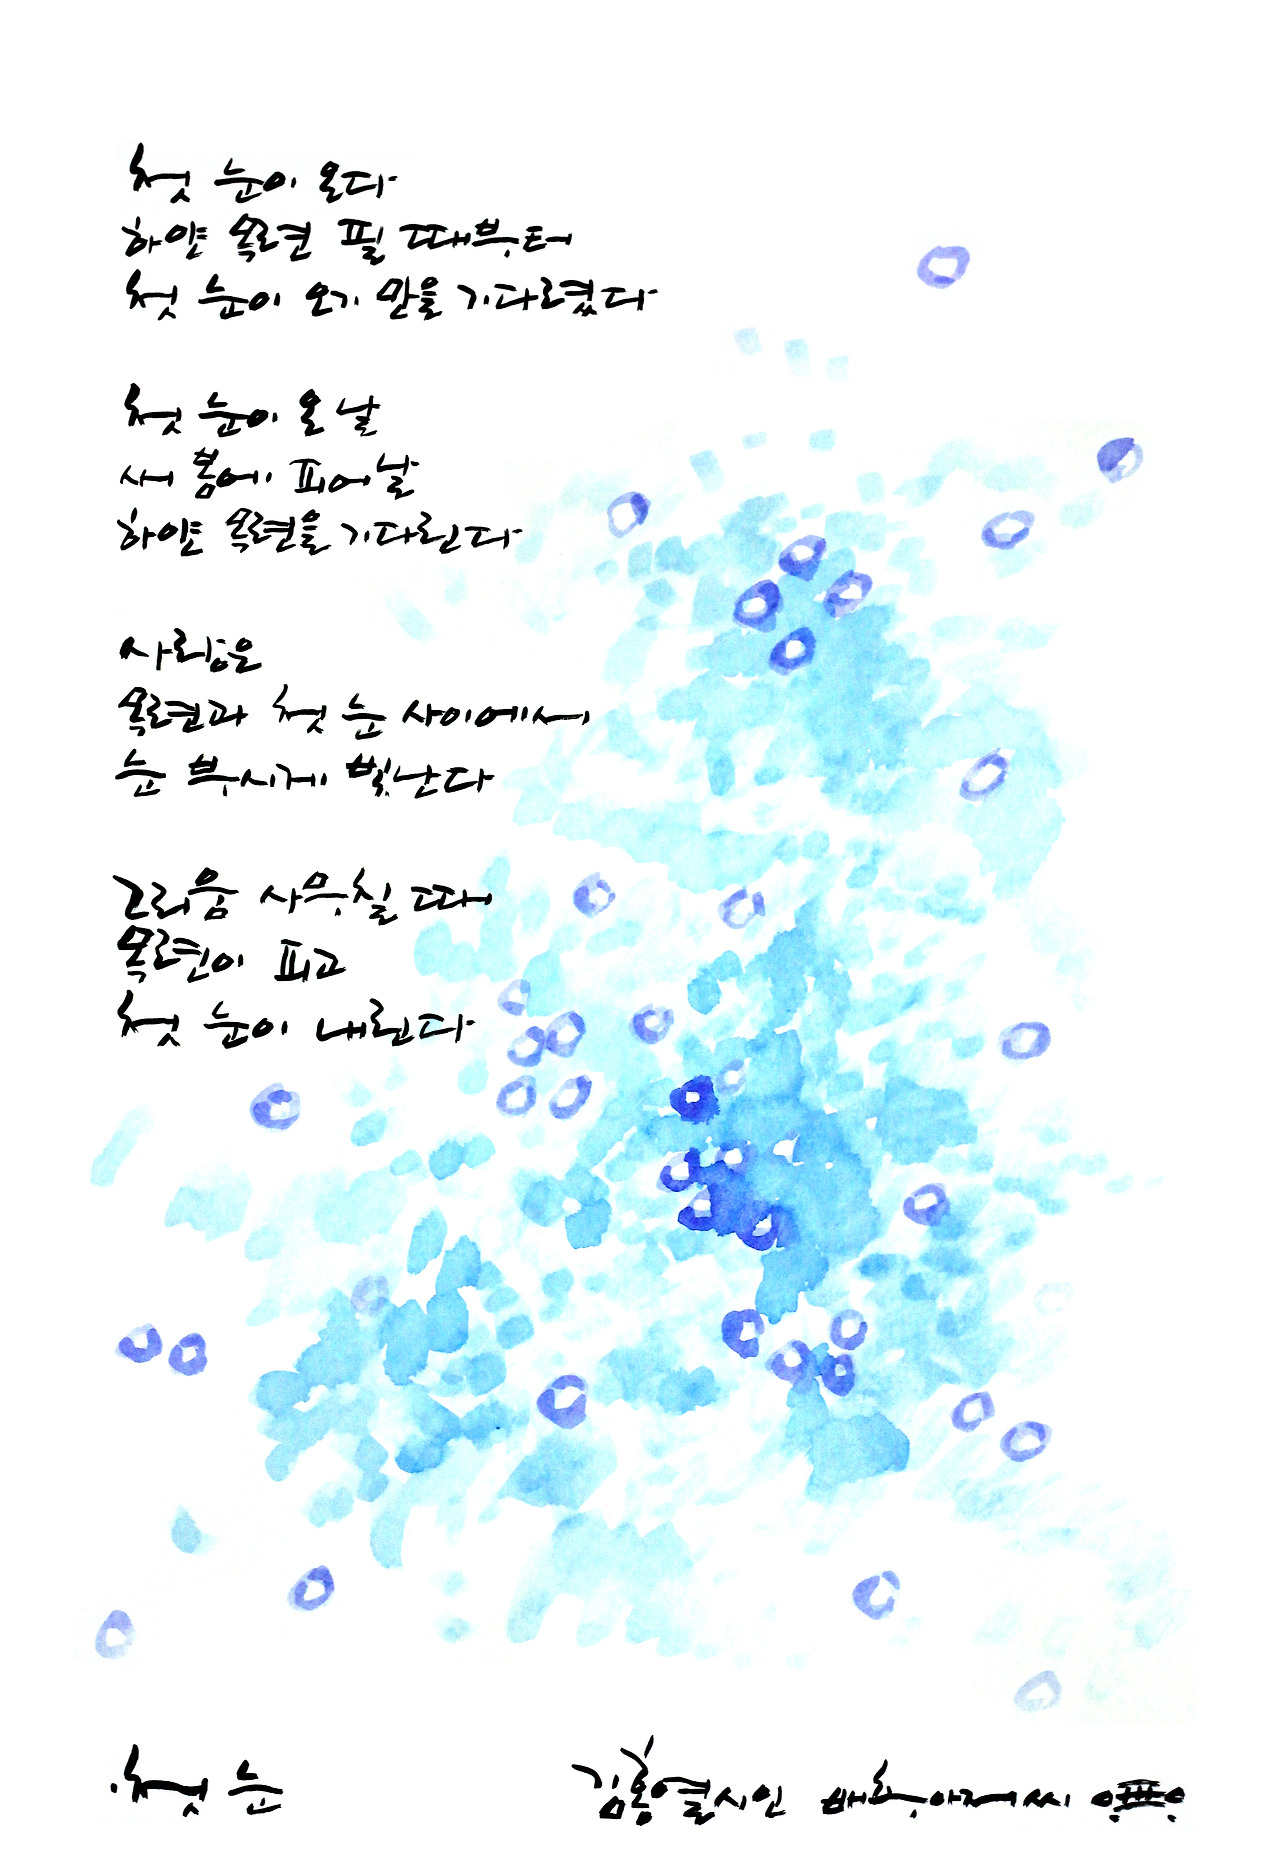 첫 눈이 온다
하얀 목련 필 때부터
첫 눈이 오기 만을 기다렸다
첫 눈이 온 날
새 봄에 피어날
하얀 목련을 기다린다
사랑은
목련과 첫 눈 사이에서
눈 부시게 빛난다
그리움 사무칠 때
목련이 피고
첫 눈이 내린다
첫 눈
김홍열시인